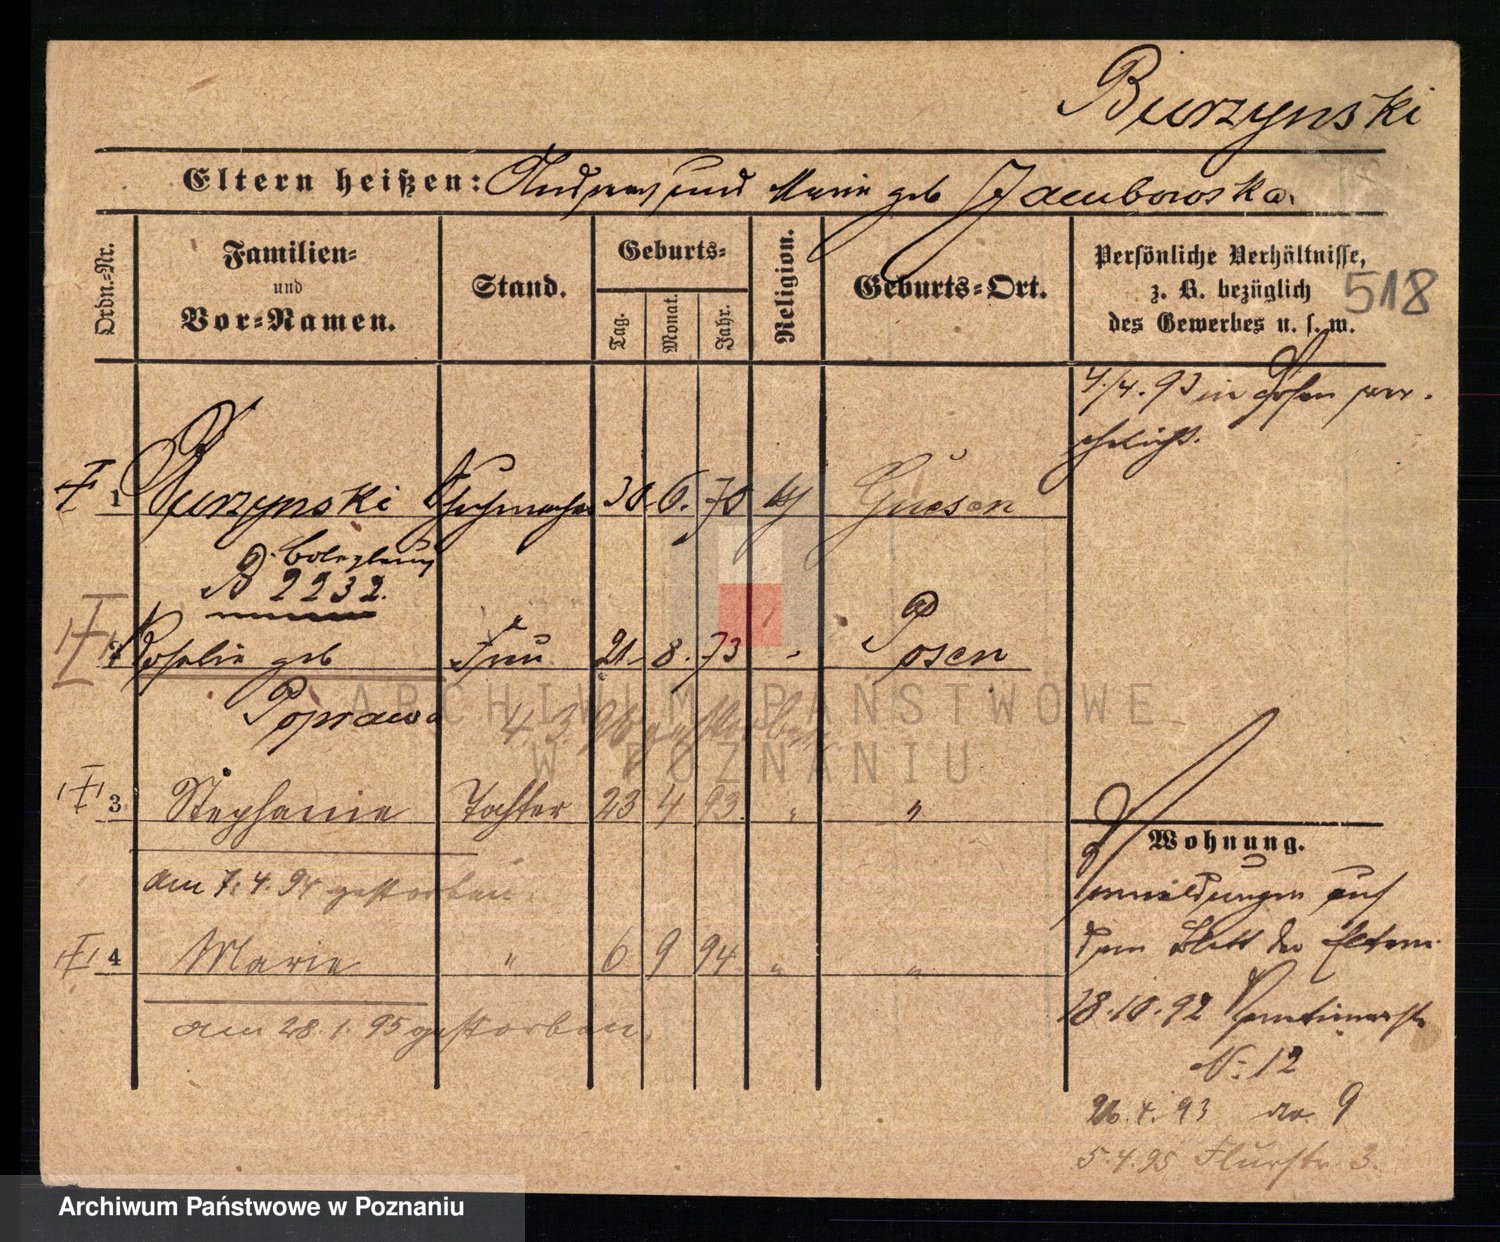 Burzynski
Eltern heißen: Andreas und Marie geb Jamborowska.
Ordn.-Nr.
Familien-
und
Vor-Namen.
Stand.
Geburts-
Tag.
Monat.
Jahr.
Religion.
Geburts-Ort.
Persönliche Verhältnisse,
z. B. bezüglich
des Gewerbes u. s. w.
518
4./4. 93 in Posen ver-
ehelicht.
1 Burzynski Schuhmacher 30. 6. 70 Gnesen
B 2232.
2 Rosalie geb Frau 21. 8. 73 " Posen
Poprawa
4. 3. 96 gestorben
3 Stephanie Tochter 23 4 93. " "
am 7. 4. 94 gestorben.
4 Marie " 6 9 94 " "
am 28. 1. 95 gestorben.
Wohnung.
Anmeldungen auf
dem Blatt der Eltern.
18. 10. 92
N: 12
26. 4. 93 do. 9
5. 4. 95 Flurstr. 3.
ARCHIWUM PAŃSTWOWE
W POZNANIU
Archiwum Państwowe w Poznaniu